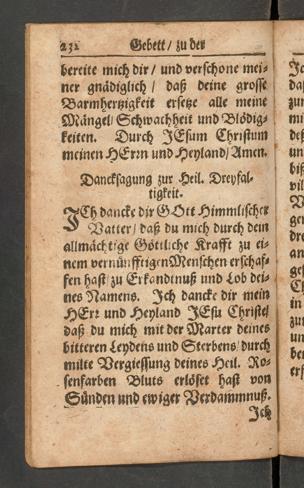 232 Gebett / zu der
bereite mich dir / und verschone mei-
ner gnädiglich / daß deine grosse
Barmhertzigkeit ersetze alle meine
Mängel / Schwachheit und Blödig-
keiten. Durch JEsum Christum
meinen HErrn und Heyland / Amen.
Dancksagung zur Heil. Dreyfal-
tigkeit.
JCh dancke dir GOtt Himmlischer
Vatter / daß du mich durch dein
allmächtige Göttliche Krafft zu ei-
nem vernünfftigen Menschen erschaf-
fen hast / zu Erkandtnuß und Lob dei-
nes Namens. Jch dancke dir mein
HErr und Heyland JEsu Christe /
daß du mich mit der Marter deines
bitteren Leydens und Sterbens / durch
milte Vergiessung deines Heil. Ro-
senfarben Bluts erlöset hast von
Sünden und ewiger Verdammnuß.
Jch